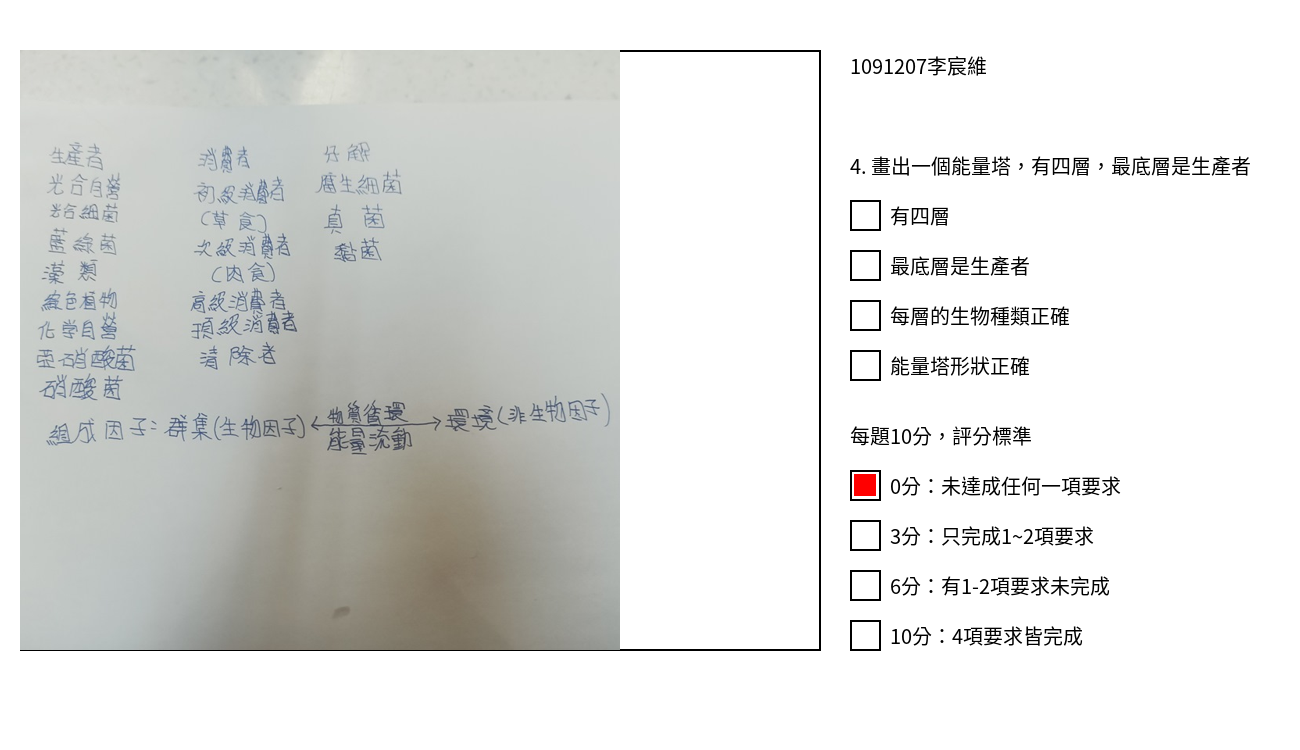 生產者
光合自營
光合細菌
藍綠菌
藻類
綠色植物
化学自營
亞硝酸菌
硝酸菌
消費者
初級消費者
(草食)
次級消費者
(肉食)
高級消費者
頂級消費者
清除者
分解
腐生細菌
真菌
黏菌
組成因子：群集(生物因子)
物質循環
能量流動
環境(非生物因子)
1091207李宸維
4. 畫出一個能量塔，有四層，最底層是生產者
有四層
最底層是生產者
每層的生物種類正確
能量塔形狀正確
每題10分，評分標準
0分：未達成任何一項要求
3分：只完成1~2項要求
6分：有1-2項要求未完成
10分：4項要求皆完成